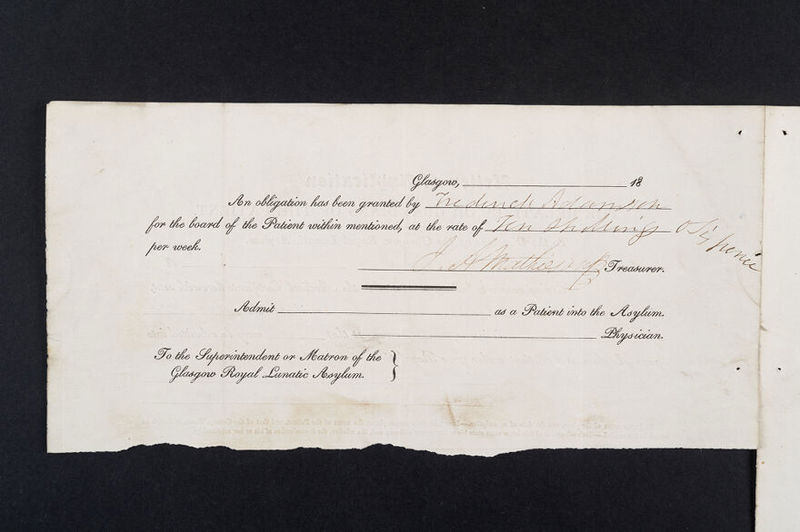 Glasgow, 18
An obligation has been granted by Frederick Adamson
for the board of the Patient within mentioned, at the rate of Ten Shillings & Sixpence
per week.
Treasurer.
Admit as a Patient into the Asylum.
Physician.
To the Superintendent or Matron of the
Glasgow Royal Lunatic Asylum.